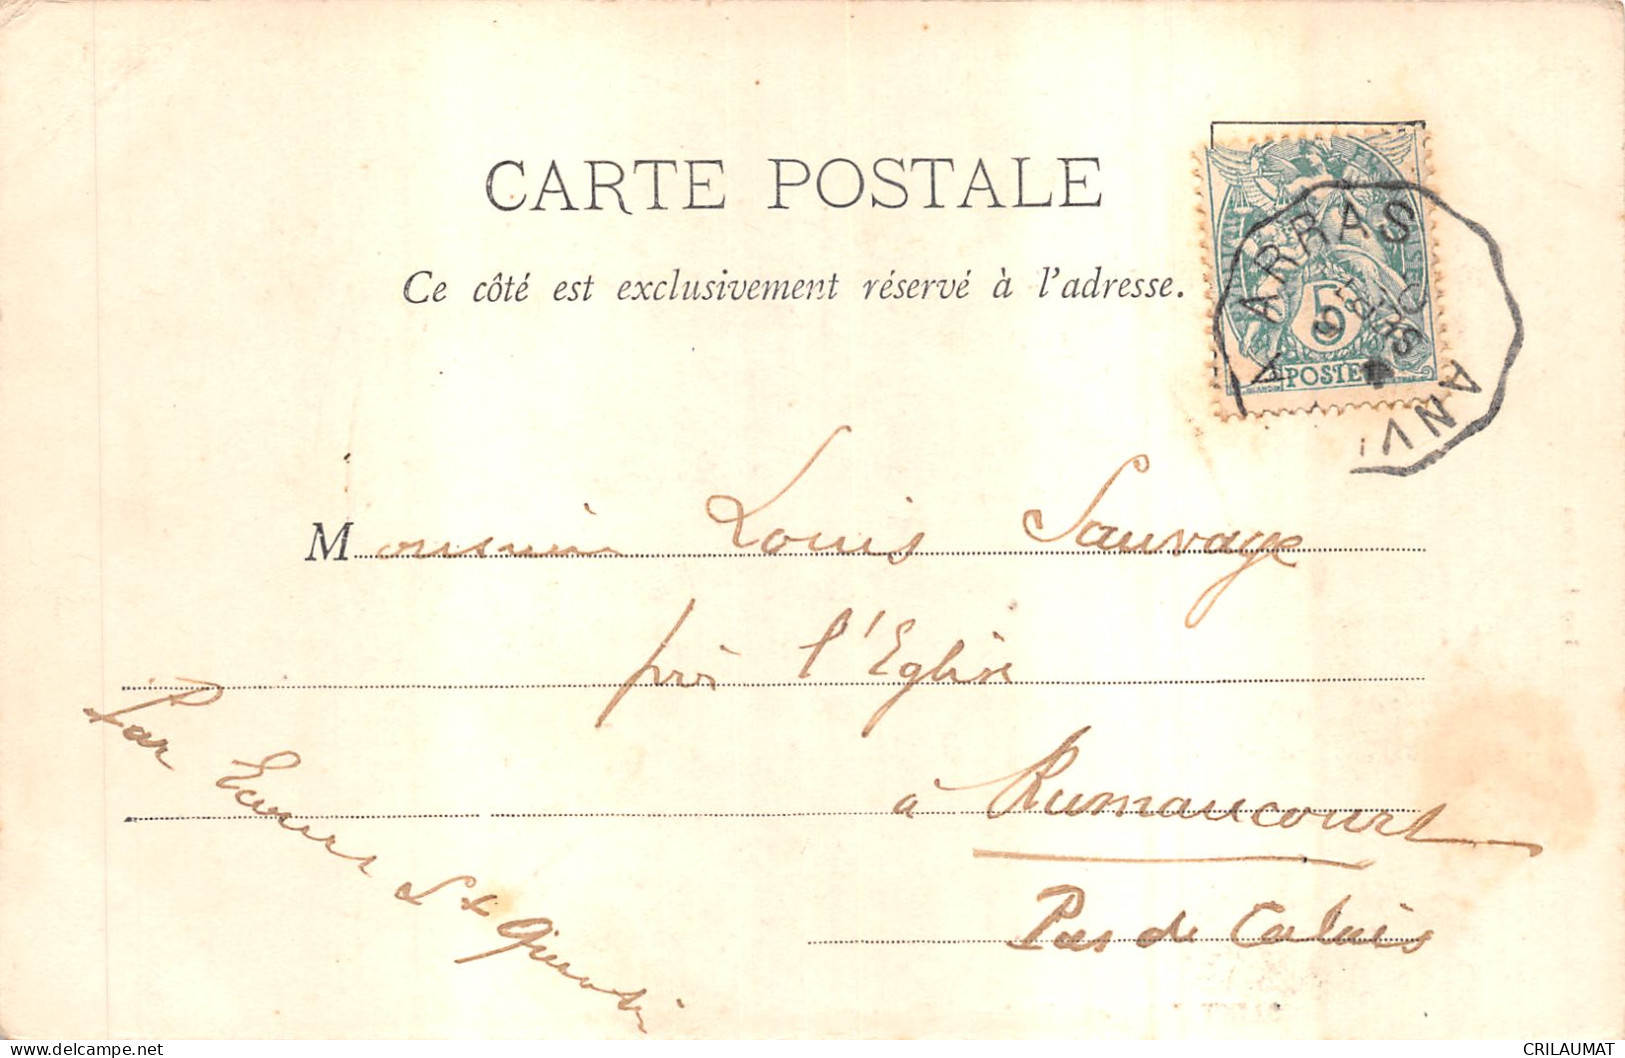 CARTE POSTALE
Ce côté est exclusivement réservé à l'adresse.
ARRAS
ANV
5
POSTE
Monsieur Louis Sauvage
près l'Eglise
à Rumaucourt
Pas de Calais
Par Ecourt St Quentin
CRILAUMAT